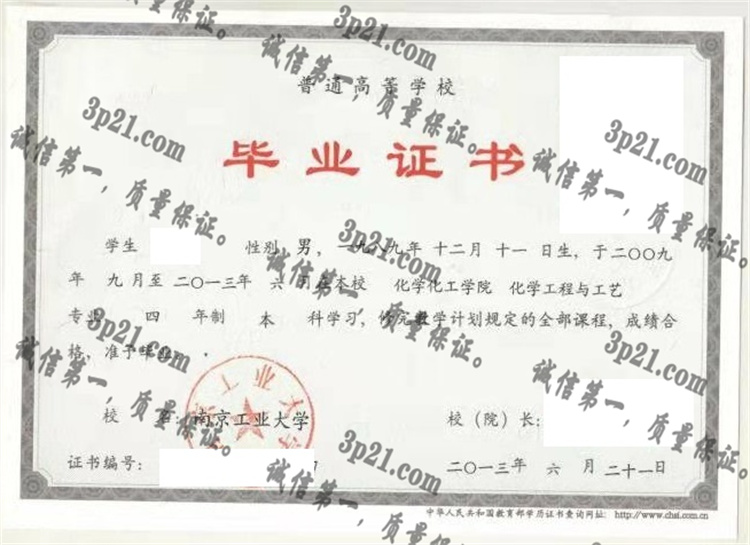 普通高等学校
毕业证书
学生 性别 男，一九八九年 十二月 十一 日生，于二〇〇九
年 九 月至 二〇一三年 六 月在本校 化学化工学院 化学工程与工艺
专业 四 年制 本 科学习，修完教学计划规定的全部课程，成绩合
格，准予毕业。
校 名：南京工业大学 校（院）长：
证书编号： 二〇一三年 六 月 二十一日
中华人民共和国教育部学历证书查询网址：http://www.chsi.com.cn
3p21.com
诚信第一，质量保证。
3p21.com
诚信第一，质量保证。
3p21.com
诚信第一，质量保证。
3p21.com
诚信第一，质量保证。
3p21.com
诚信第一，质量保证。
3p21.com
诚信第一，质量保证。
3p21.com
诚信第一，质量保证。
3p21.com
诚信第一，质量保证。